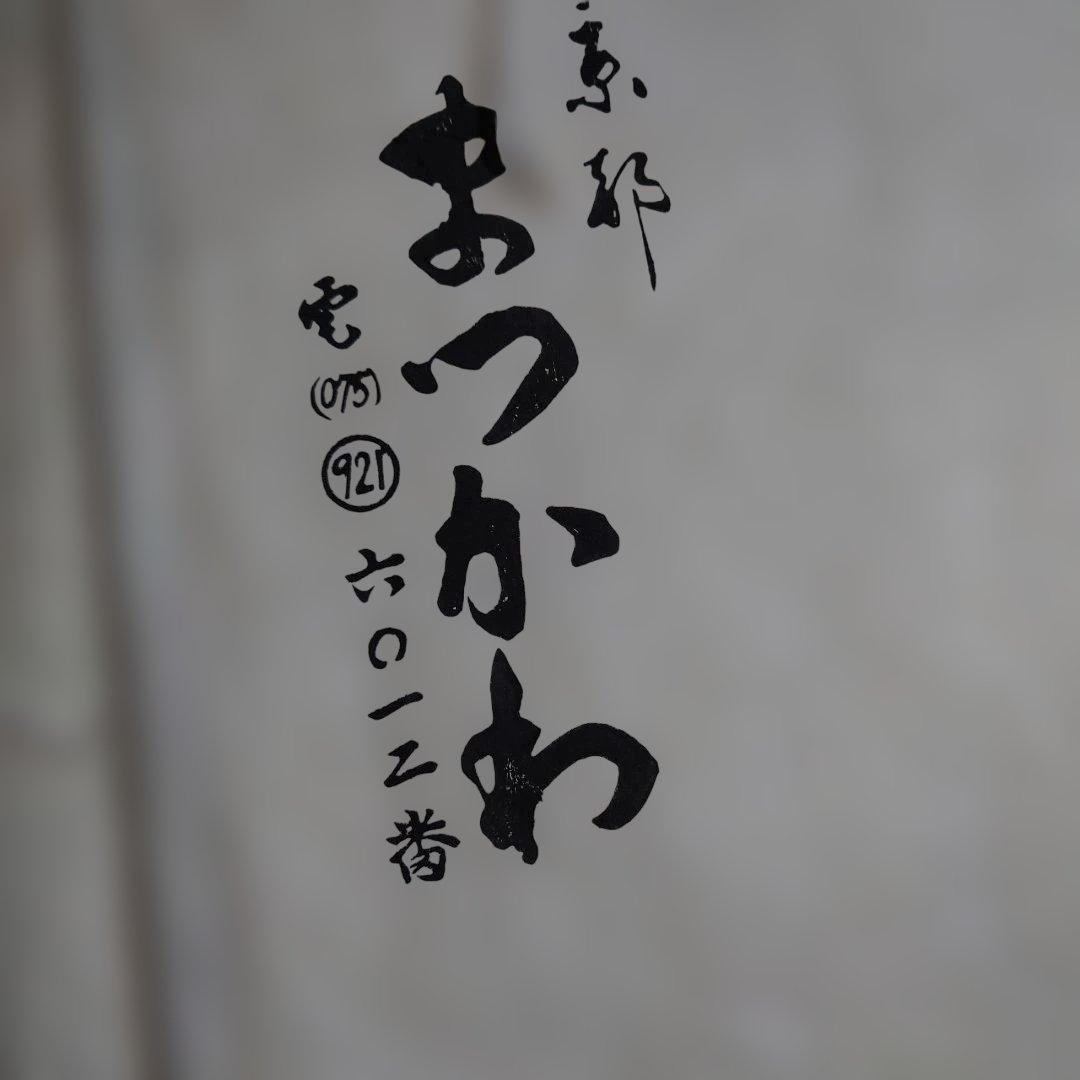 京都
まつかわ
電(075)921六〇一二番